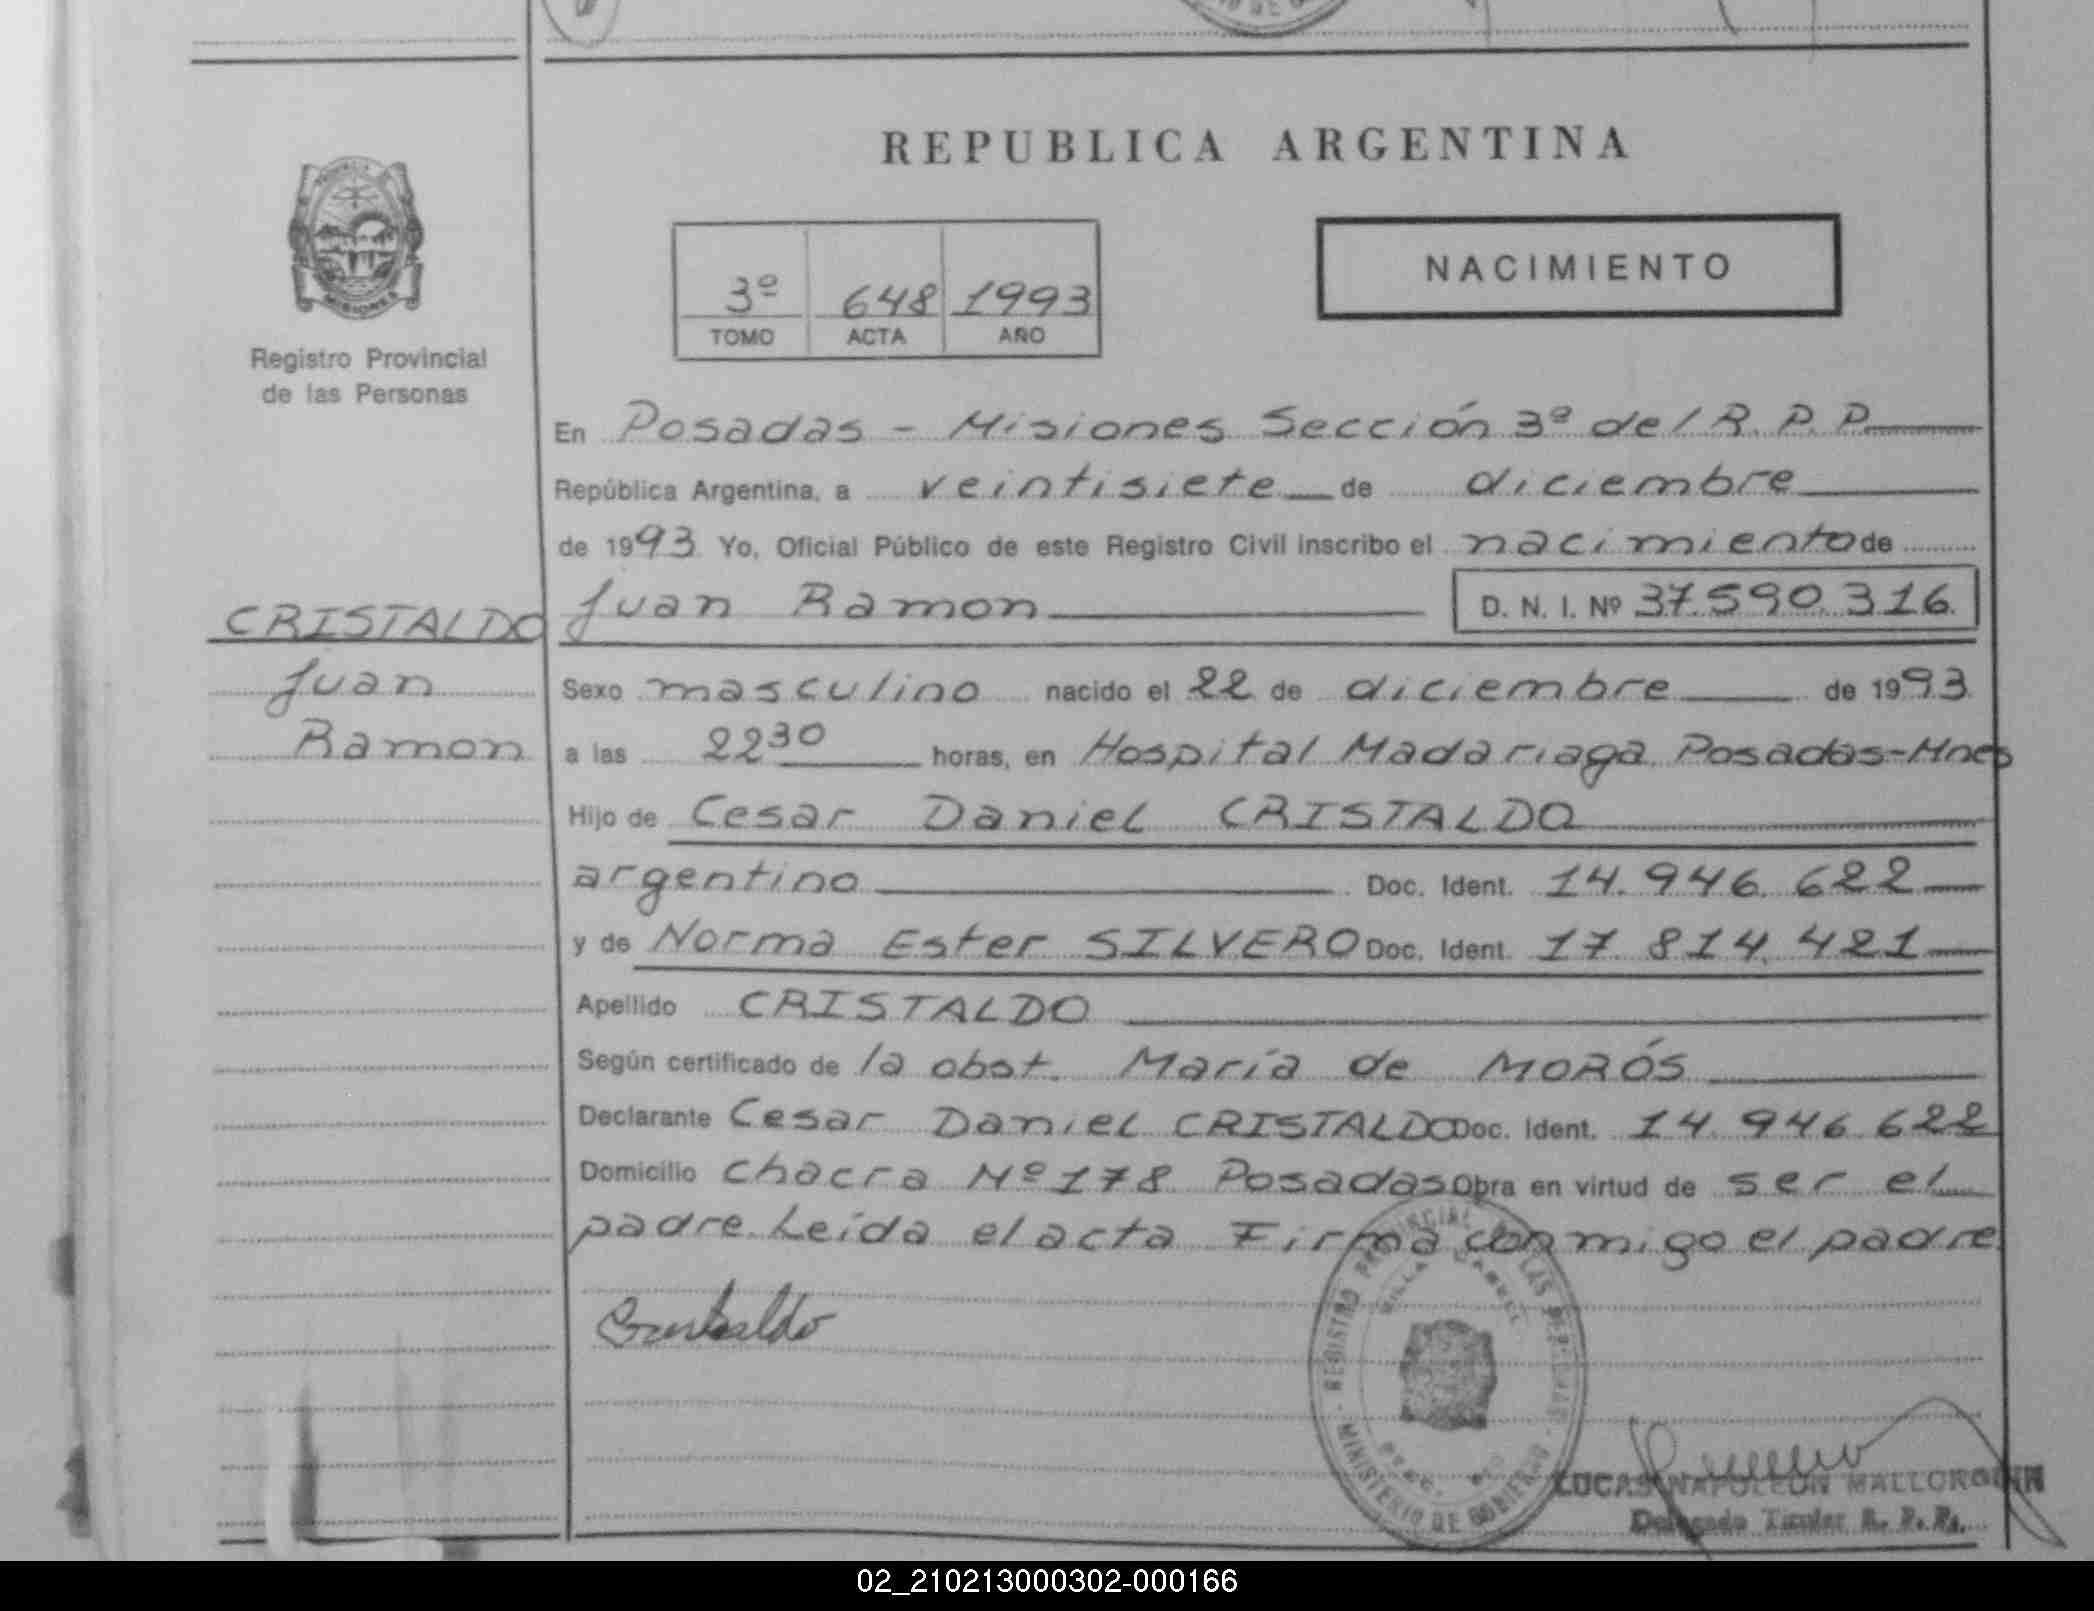 REPUBLICA ARGENTINA
NACIMIENTO
3º 648 1993
TOMO ACTA AÑO
PROVINCIA
MISIONES
Registro Provincial
de las Personas
CRISTALDO
Juan
Ramon
En Posadas - Misiones Sección 3ª del R. P. P.
República Argentina, a veintisiete de diciembre
de 1993 Yo, Oficial Público de este Registro Civil inscribo el nacimiento de
Juan Ramon D. N. I. Nº 37.590.316
Sexo masculino nacido el 22 de diciembre de 1993
a las 22 30 horas, en Hospital Madariaga Posadas-Mnes
Hijo de Cesar Daniel CRISTALDO
argentino Doc. Ident. 14.946.622
y de Norma Ester SILVERO Doc. Ident. 17.814.421
Apellido CRISTALDO
Según certificado de la obst. María de MORÓS
Declarante Cesar Daniel CRISTALDO Doc. Ident. 14.946.622
Domicilio Chacra Nº 178 Posadas Obra en virtud de ser el
padre. Leída el acta Firma conmigo el padre
Cristaldo
REGISTRO PROVINCIAL DE LAS PERSONAS
MINISTERIO DE GOBIERNO
LUCAS NAPOLEON
Delegado Titular R. P. P.
02_210213000302-000166